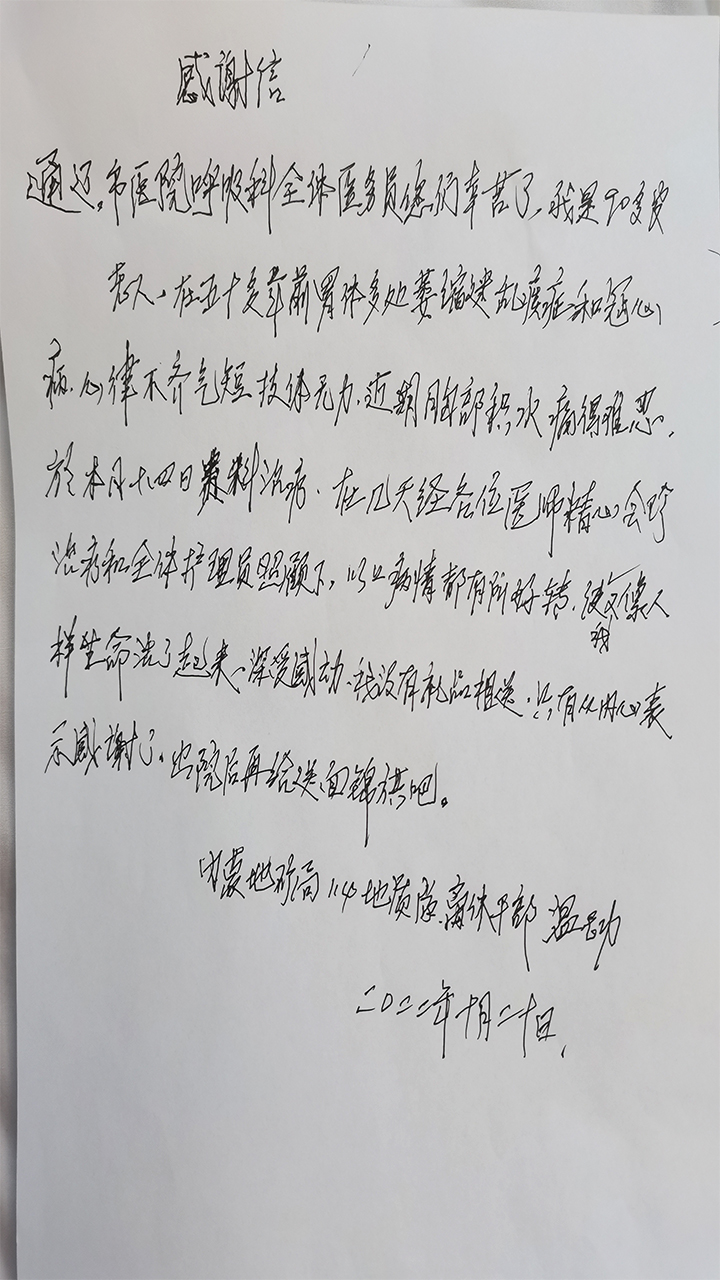 感谢信
通辽市医院呼吸科全体医务员您们辛苦了,我是90多岁
老人、在五十多年前胃体多处萎缩和冠心
病、心律不齐气短肢体无力,近期胸部积水痛得难忍,
於本月十四日贵科治病,在几天经各位医师精心会诊
治疗和全体护理员照顾下,病情都有所好转,使我像人
样生命活了起来、深受感动、我没有礼品相送,只有从内心表
示感谢了,出院后再给送面锦旗吧。
内蒙地矿局114地质队离休干部 温
二〇二二年十月二十日